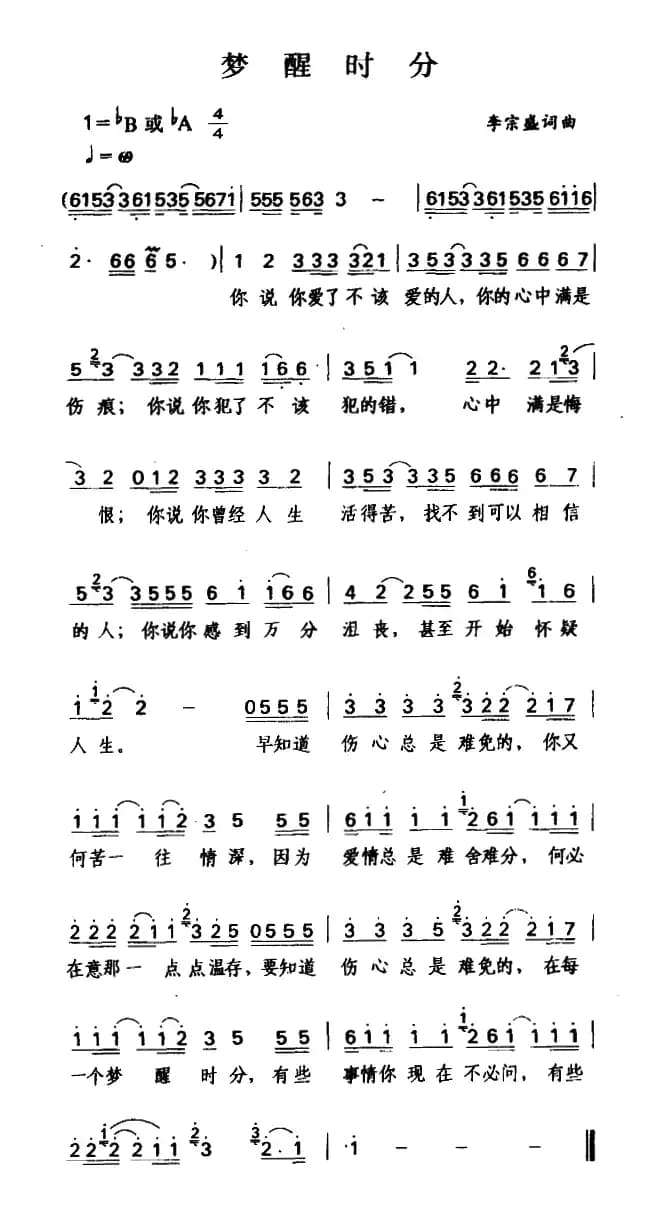 梦醒时分
1=♭B或♭A 4/4
李宗盛词曲
♩=
(6153361535 5671̇|555 563 3 – |6153361535 61̇1̇6|
2̇· 66 6 5· )|1 2 333 321|353335 6667|
你说你爱了不该 爱的人，你的心中满是
5 2̇3 332 111 166·|3511 22· 212̇3|
伤痕；你说你犯了不该 犯的错， 心中 满是悔
3 2 012 333 3 2|353335 666 6 7|
恨；你说你曾经人生 活得苦，找不到可以相信
5 2̇3 3555 6 1̇ 1̇66|4 2 255 6 1̇ 6̇1̇ 6|
的人；你说你感到万分 沮丧，甚至开始怀疑
1̇ 1̇2̇ 2̇ – 0555|3̇ 3̇ 3̇ 3̇ 2̇3̇2̇2̇ 2̇1̇7|
人生。 早知道 伤心总是难免的，你又
1̇1̇1̇ 1̇1̇2̇·3 5 55|61̇1̇ 1̇ 1̇ 1̇2̇61̇ 1̇1̇1̇|
何苦一 往 情深，因为 爱情总是难舍难分，何必
2̇2̇2̇ 2̇1̇1̇ 2̇3̇2̇5 0555|3̇ 3̇ 3̇ 5 2̇3̇2̇2̇ 2̇1̇7|
在意那一点点温存，要知道 伤心总是难免的，在每
1̇1̇1̇ 1̇1̇2̇ 3 5 55|61̇1̇ 1̇ 1̇ 1̇2̇61̇ 1̇1̇1̇|
一个梦 醒 时分，有些 事情你现在不必问，有些
2̇2̇1̇2̇ 2̇1̇1̇ 2̇3 3̇2̇·1̇|·1̇ – – –‖